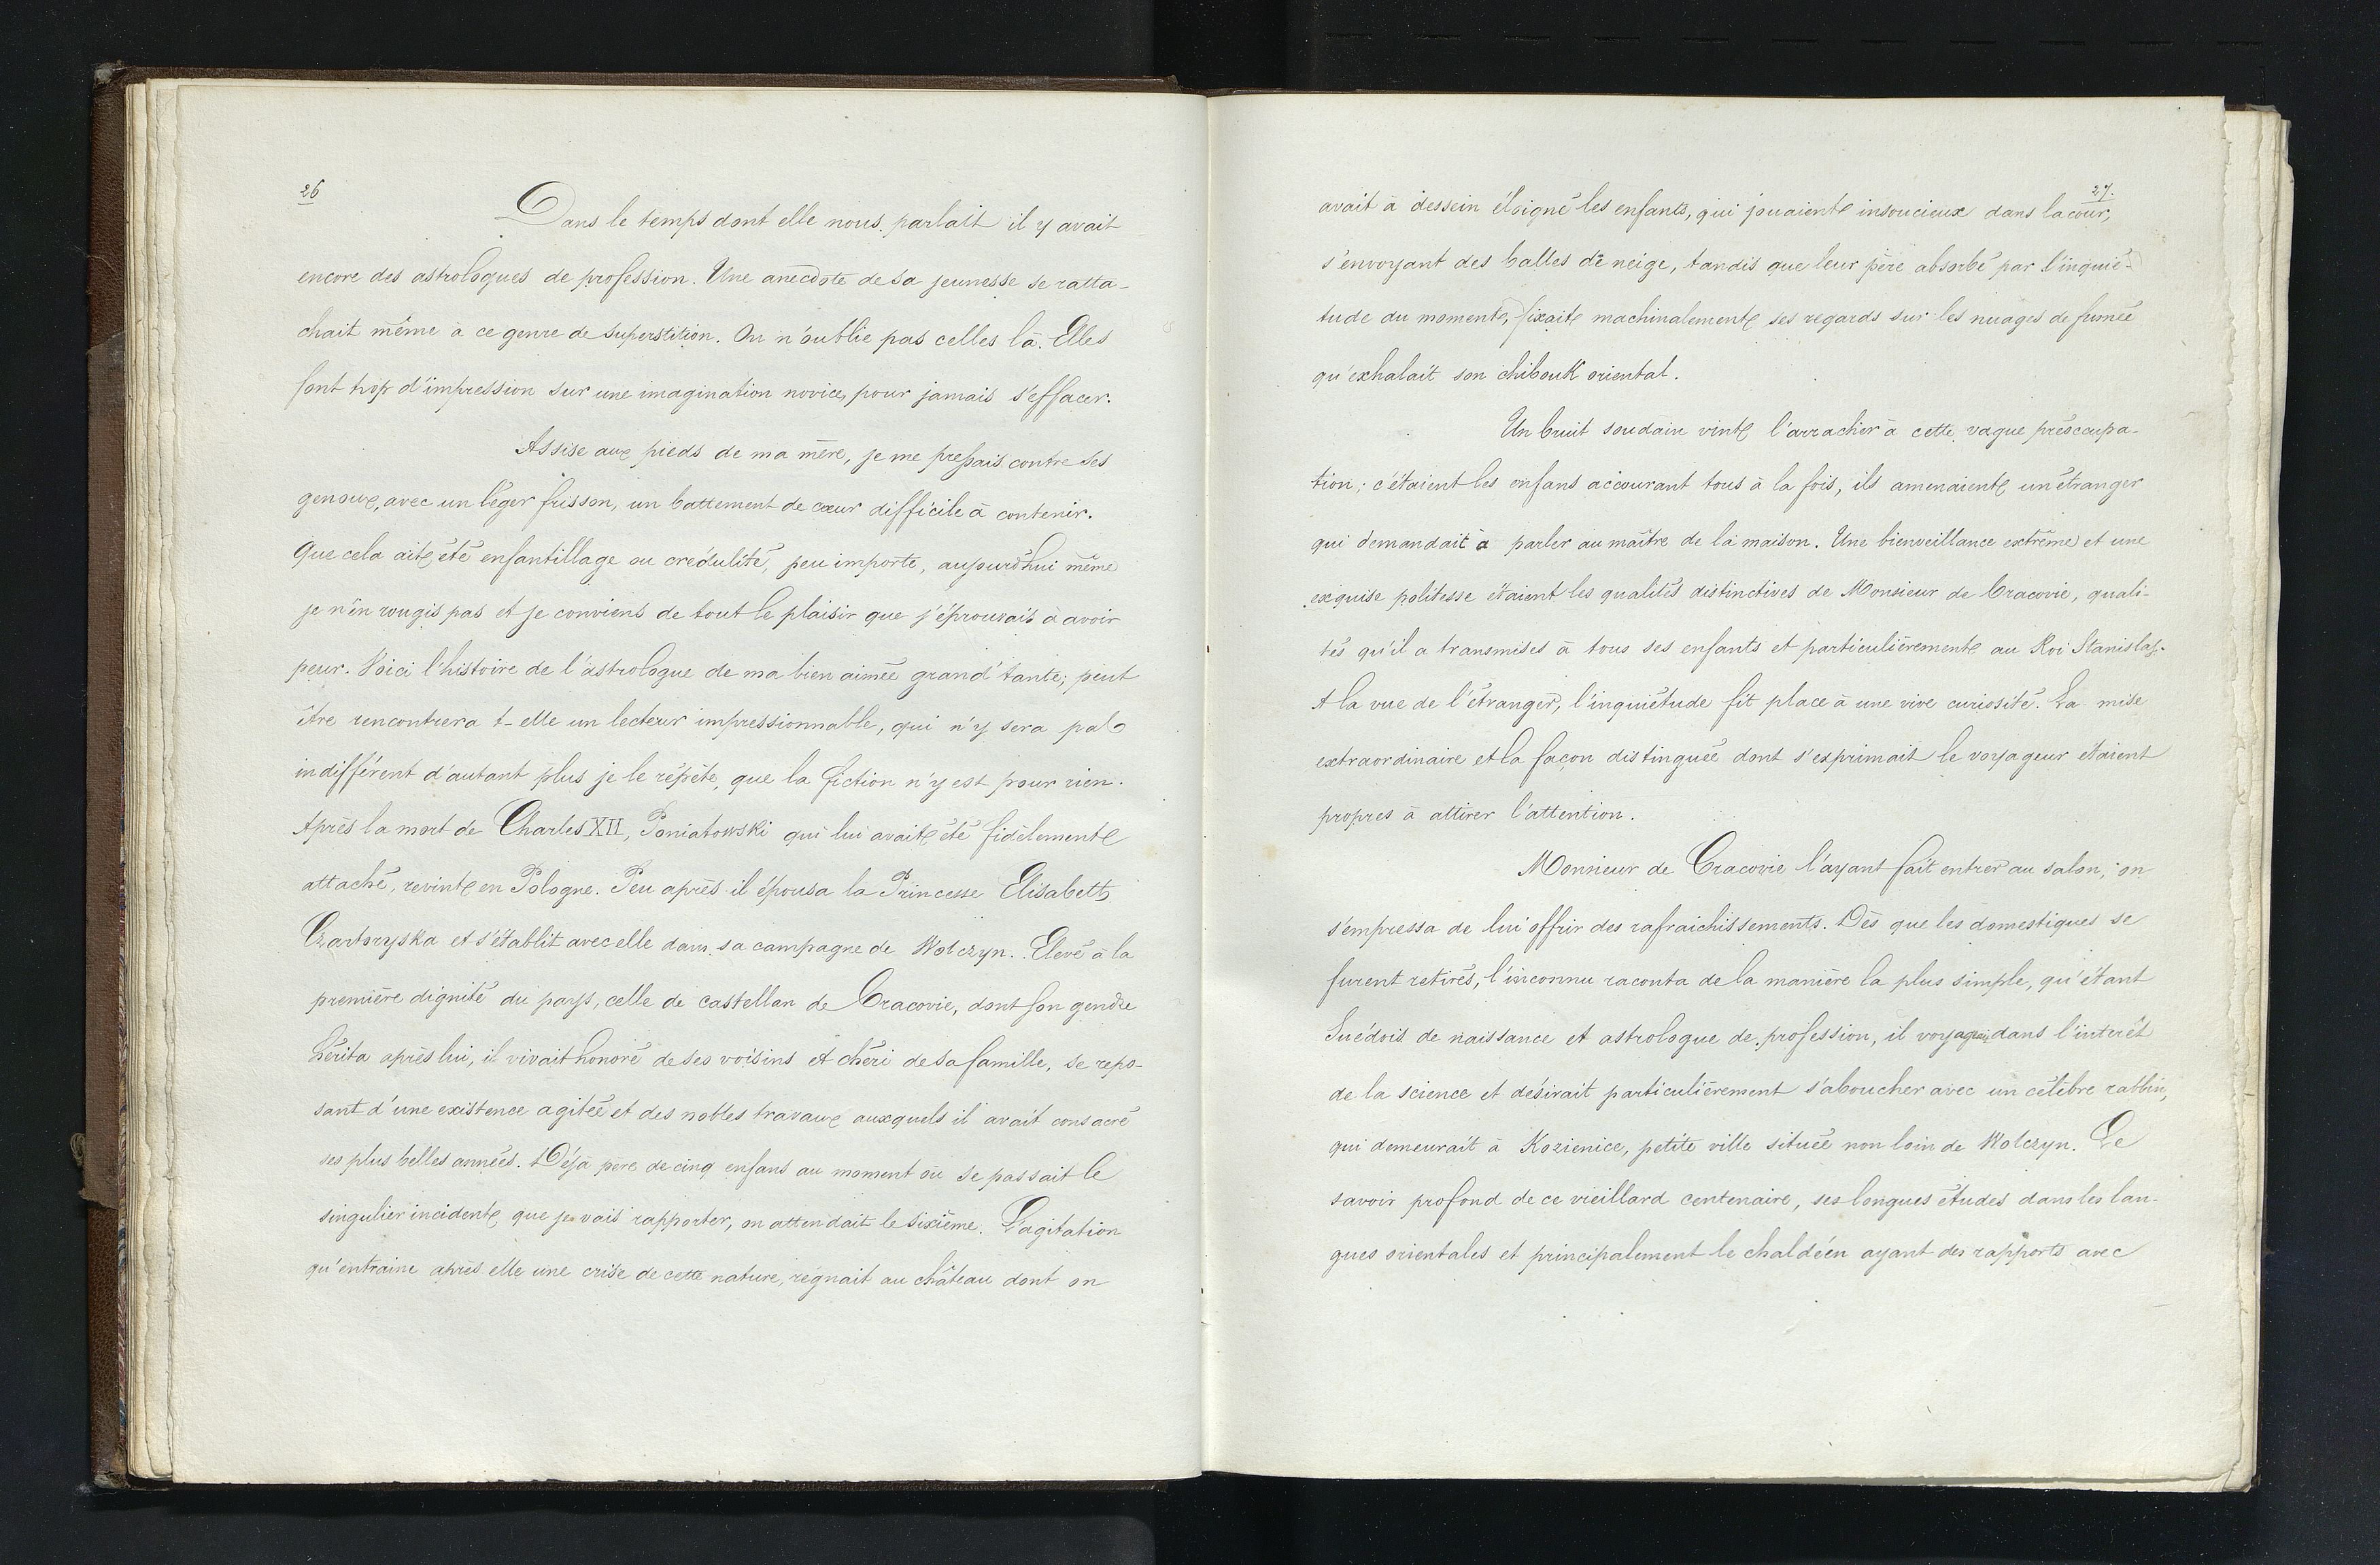 26
Dans le temps dont elle nous parlait il y avait
encore des astrologues de profession. Une anecdote de sa jeunesse se ratta-
chait même à ce genre de superstition. On n'oublie pas celles là. Elles
font trop d'impression sur une imagination novice, pour jamais s'effacer.
Assise aux pieds de ma mère, je me pressais contre ses
genoux, avec un léger frisson, un battement de cœur difficile à contenir.
Que cela ait été enfantillage ou credulité, peu importe, aujourd'hui même
je n'en rougis pas et je conviens de tout le plaisir que j'éprouvais à avoir
peur. Voici l'histoire de l'astrologue de ma bien aimée grand'tante; peut
être rencontrera t-elle un lecteur impressionnable, qui n'y sera pas
indifférent d'autant plus je le répète, que la fiction n'y est pour rien.
Après la mort de Charles XII, Poniatowski qui lui avait été fidèlement
attaché, revint en Pologne. Peu après il épousa la Princesse Elisabeth
Czartoryska et s'établit avec elle dans sa campagne de Wolczyn. Elevé à la
première dignité du pays, celle de castellan de Cracovie, dont son gendre
hérita après lui, il vivait honoré de ses voisins et chéri de sa famille, se repo-
sant d'une existence agitée et des nobles travaux auxquels il avait consacré
ses plus belles années. Déjà père de cinq enfans au moment où se passait le
singulier incident que je vais rapporter, on attendait le sixième. L'agitation
qu'entraine après elle une crise de cette nature, régnait au château dont on
27.
avait à dessein éloigné les enfants, qui jouaient insoucieux dans la cour,
s'envoyant des balles de neige, tandis que leur père absorbé par l'inquié-
tude du moment, fixait machinalement ses regards sur les nuages de fumée
qu'exhalait son chibouk oriental.
Un bruit soudain vint l'arracher à cette vague préoccupa-
tion; c'étaient les enfans accourant tous à la fois, ils amenaient un étranger
qui demandait à parler au maître de la maison. Une bienveillance extrême et une
exquise politesse étaient les qualités distinctives de Monsieur de Cracovie, quali-
tés qu'il a transmises à tous ses enfants et particulièrement au Roi Stanislas.
A la vue de l'étranger, l'inquiétude fit place à une vive curiosité. La mise
extraordinaire et la façon distinguée dont s'exprimait le voyageur étaient
propres à attirer l'attention.
Monsieur de Cracovie l'ayant fait entrer au salon, on
s'empressa de lui offrir des rafraichissements. Dès que les domestiques se
furent retirés, l'inconnu raconta de la manière la plus simple, qu'étant
Suédois de naissance et astrologue de profession, il voyageait dans l'interêt
de la science et désirait particulièrement s'aboucher avec un célèbre rabbin,
qui demeurait à Kozienice, petite ville située non loin de Wolczyn. Le
savoir profond de ce vieillard centenaire, ses longues études dans les lan-
gues orientales et principalement le chaldéen ayant des rapports avec